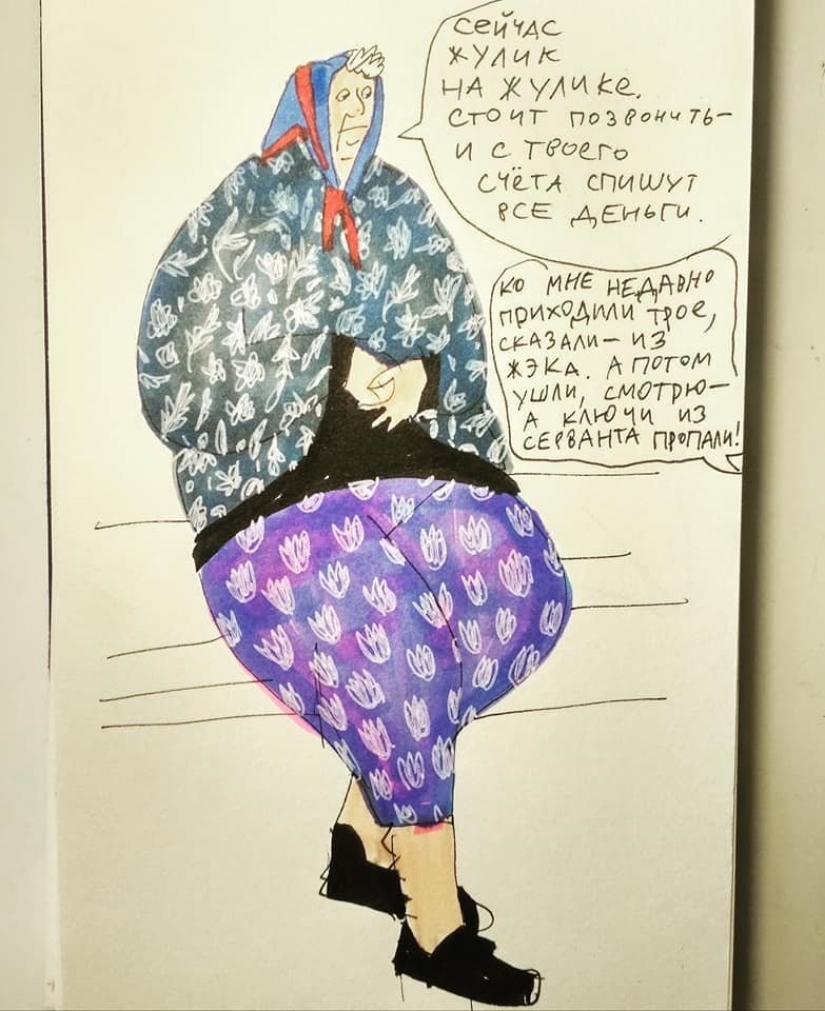 сейчас
жулик
на жулике.
стоит позвонить—
и с твоего
счёта спишут
все деньги.
ко мне недавно
приходили трое,
сказали— из
жэка. а потом
ушли, смотрю—
а ключи из
серванта пропали!